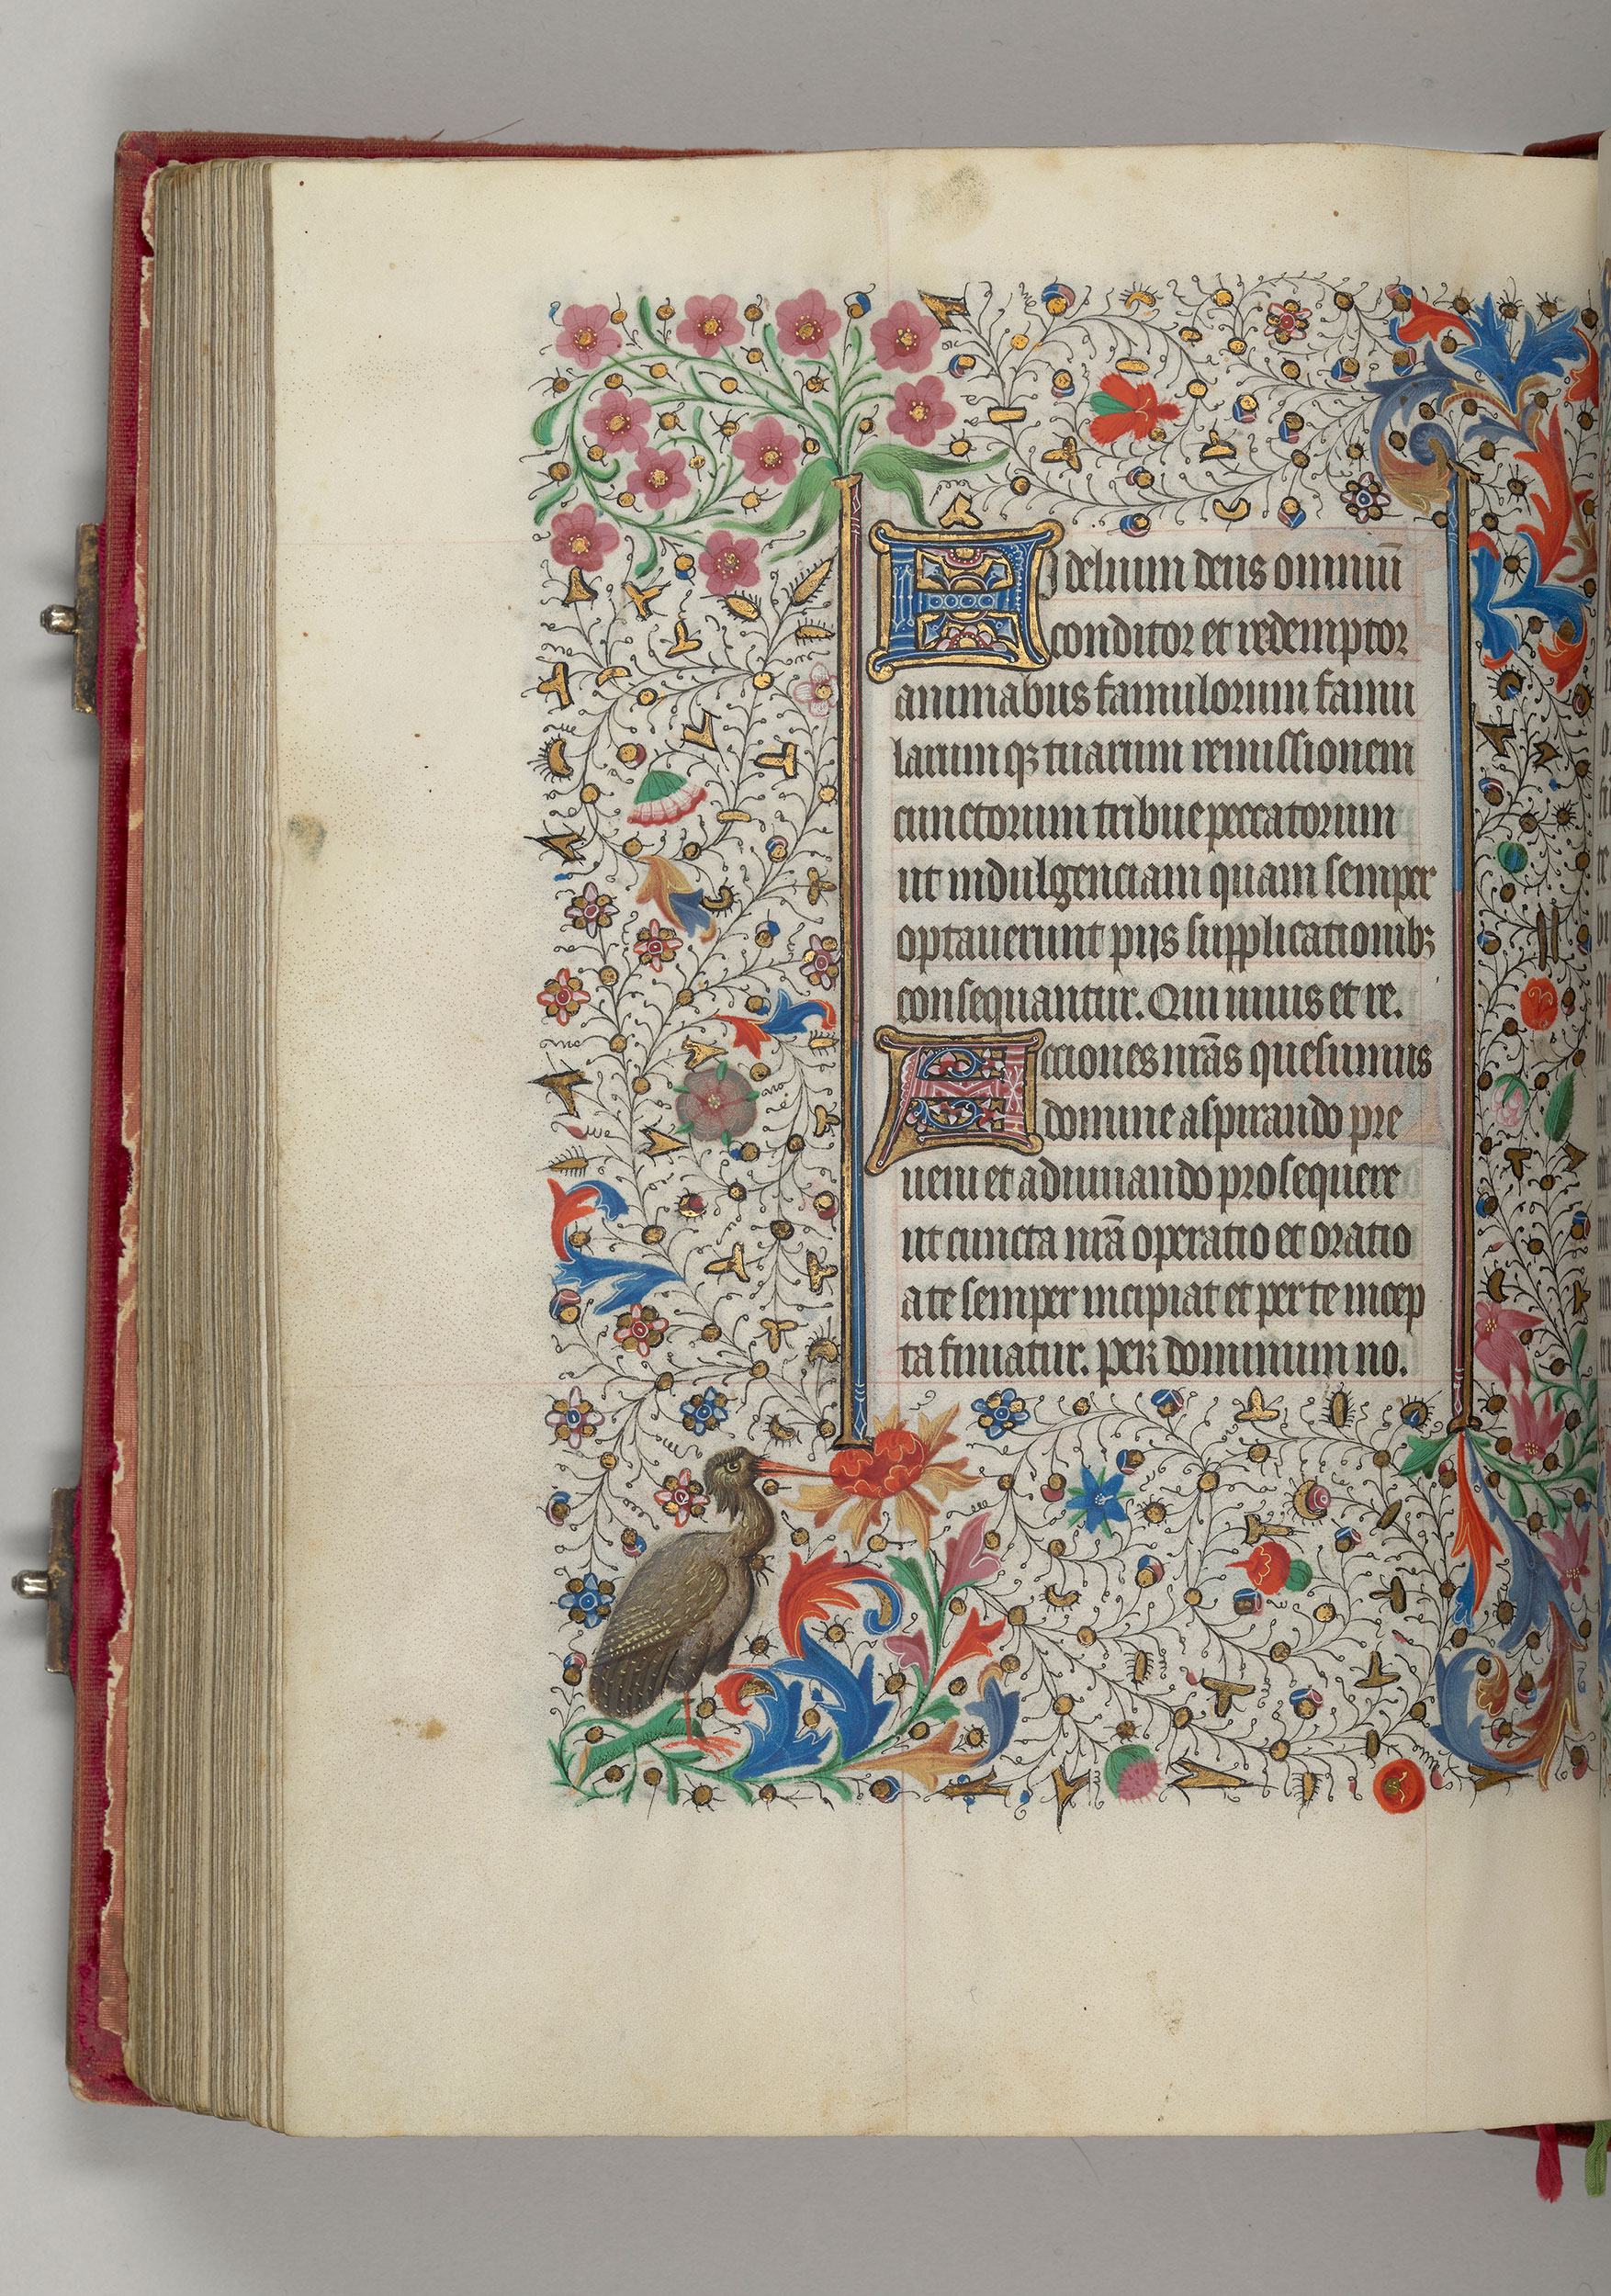 Fidelium deus omniū
conditor et redemptor
animabus famulorum famu
larum qꝫ tuarum remissionem
cunctorum tribue peccatorum
ut indulgenciam quam semper
optauerunt piis supplicationibꝫ
consequantur. Qui uiuis et re.
Acciones nrās quesumus
domine aspirando pre
ueni et adiuuando prosequere
ut cuncta nrā operatio et oratio
a te semper incipiat et per te incep
ta finiatur. Per dominum no.